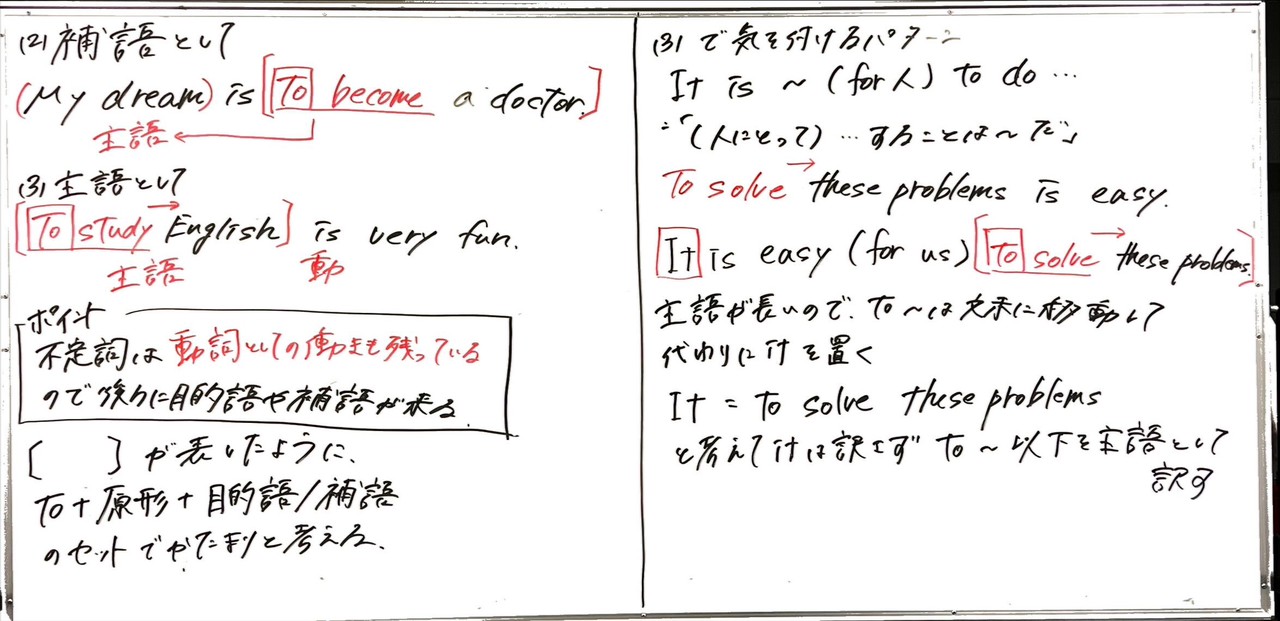 (2) 補語として
(My dream) is [To become a doctor.]
主語
(3) 主語として
[To study English] is very fun.
主語 動
ポイント
不定詞は動詞としての働きも残っている
ので後ろに目的語や補語が来る.
[ ] が表したように、
to + 原形 + 目的語/補語
のセットでかたまりと考える.
(3) で気を付けるパターン
It is ~ (for 人) to do …
=「(人にとって) …することは~だ」
To solve these problems is easy.
It is easy (for us) [to solve these problems.]
主語が長いので、to ~は文末に移動して
代わりに it を置く
It = to solve these problems
と考えて it は訳さず to ~ 以下を主語として
訳す